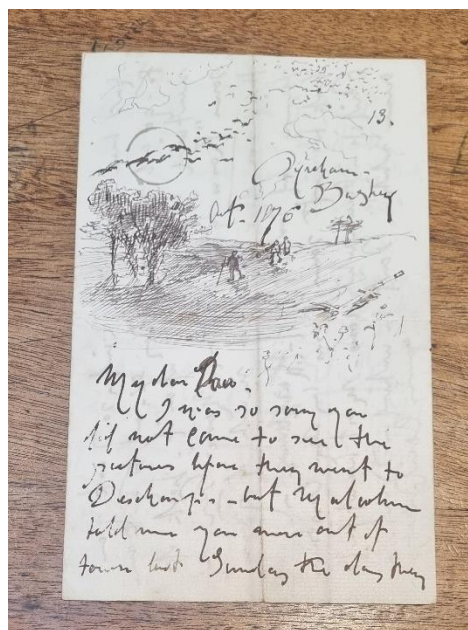 13.
Dyreham
Bushey
Oct. 1876
My dear
I was so sorry you
did not come to see the
pictures before they went to
Deschamps - but Malcolm
told me you were out of
town last Sunday the day they